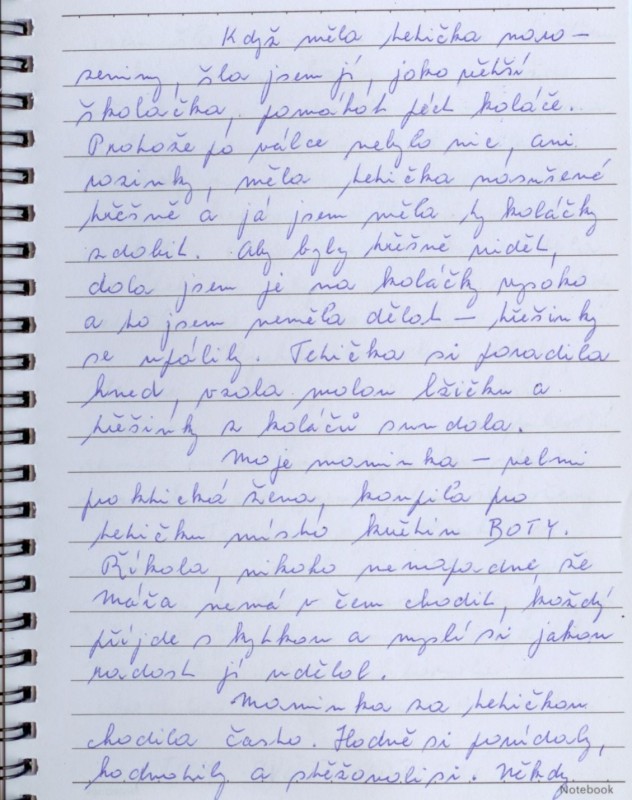 Když měla tetička naro-
zeniny, šla jsem jí, jako větší
školačka, pomáhat péct koláče.
Protože po válce nebylo nic, ani
rozinky, měla tetička nasušené
třešně a já jsem měla ty koláčky
zdobit. Aby byly třešně vidět,
dala jsem je na koláčky vysoko
a to jsem neměla dělat – třešinky
se upálily. Tetička si poradila
hned, vzala malou lžičku a
třešinky z koláčů sundala.
Moje maminka – velmi
praktická žena, koupila pro
tetičku místo květin BOTY.
Říkala, nikoho nenapadne, že
Máňa nemá v čem chodit, každý
přijde s kytkou a myslí si jakou
radost jí udělal.
Maminka za tetičkou
chodila často. Hodně si povídaly,
hodnotily a stěžovali si. Někdy
Notebook